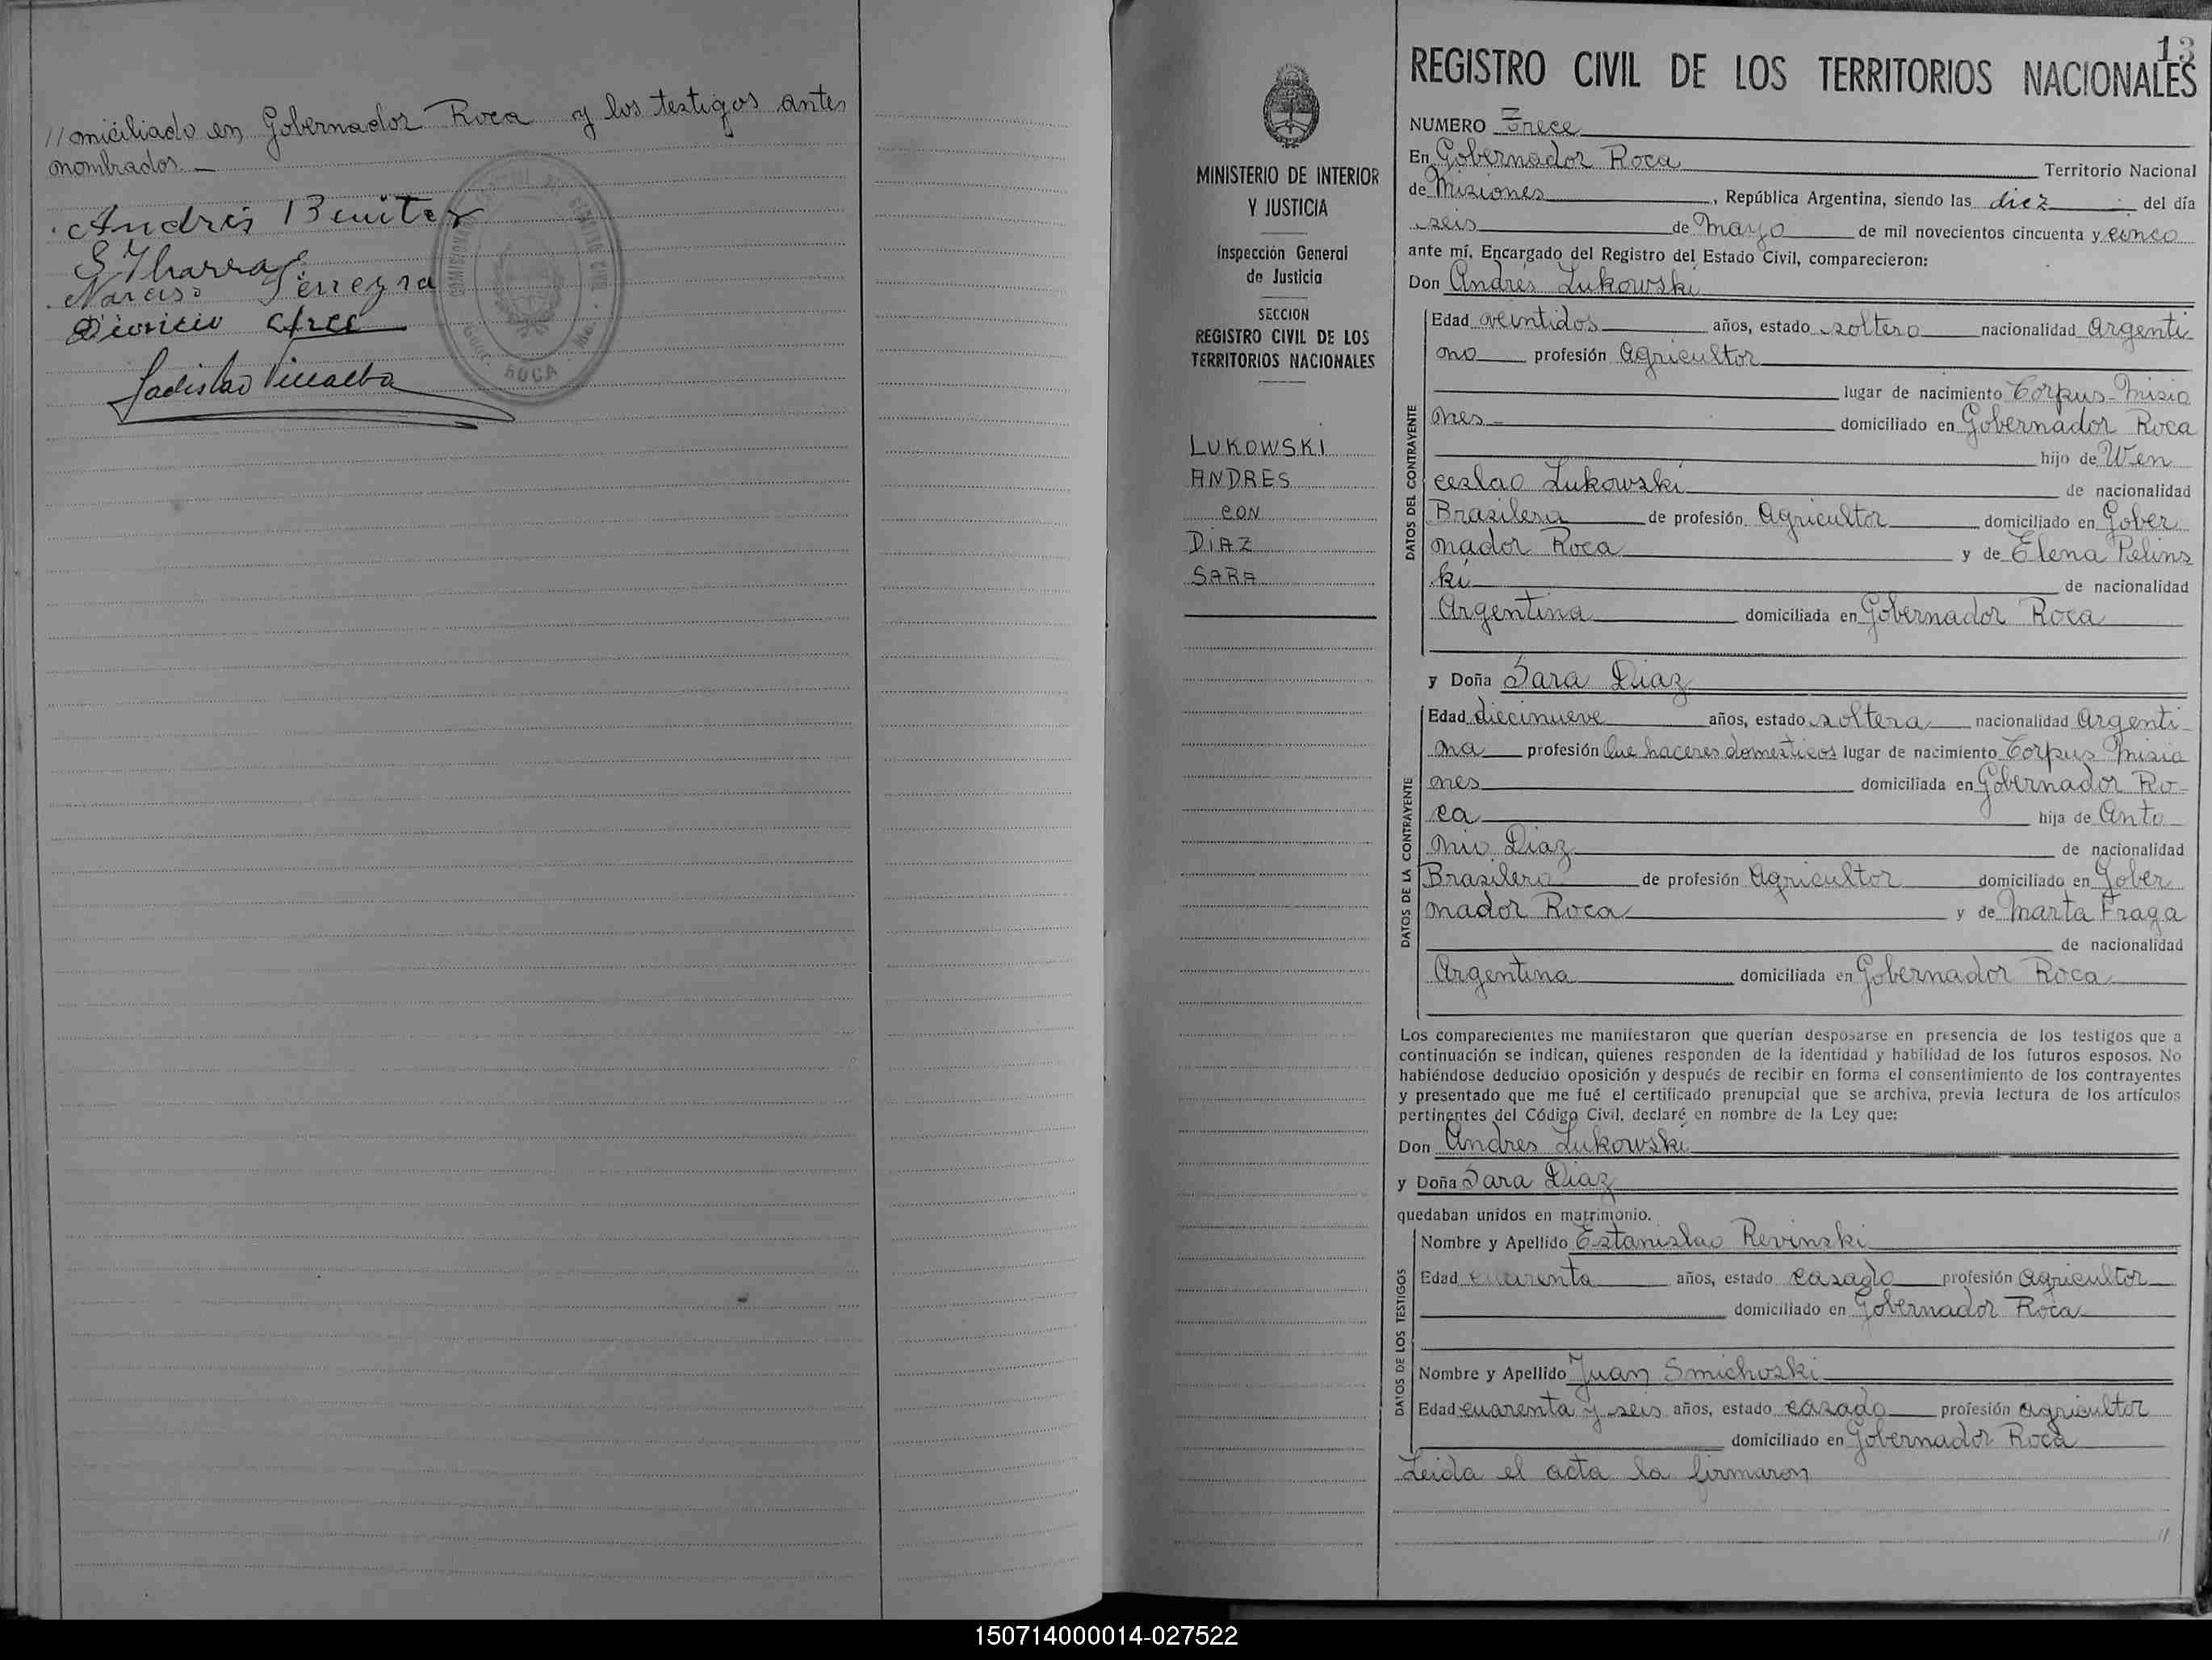 //omiciliado en Gobernador Roca y los testigos antes
nombrados.—
Andrés Benitez
S Ybarra
Narciso Ferreyra
Dionicio Arce
Ladislao Villalba
ROCA
MINISTERIO DE INTERIOR
Y JUSTICIA
Inspección General
de Justicia
SECCION
REGISTRO CIVIL DE LOS
TERRITORIOS NACIONALES
LUKOWSKI
ANDRES
CON
DIAZ
SARA
13
REGISTRO CIVIL DE LOS TERRITORIOS NACIONALES
NUMERO Trece
En Gobernador Roca Territorio Nacional
de Misiones, República Argentina, siendo las diez del día
seis de Mayo de mil novecientos cincuenta y cinco
ante mí, Encargado del Registro del Estado Civil, comparecieron:
Don Andrés Lukowski
DATOS DEL CONTRAYENTE
Edad veintidos años, estado soltero nacionalidad Argenti
no profesión Agricultor
lugar de nacimiento Corpus-Misio
nes- domiciliado en Gobernador Roca
hijo de Wen
ceslao Lukowski de nacionalidad
Brasilera de profesión Agricultor domiciliado en Gober
nador Roca y de Elena Pelins
ki de nacionalidad
Argentina domiciliada en Gobernador Roca
y Doña Sara Diaz
DATOS DE LA CONTRAYENTE
Edad diecinueve años, estado soltera nacionalidad Argenti-
na profesión Que haceres domesticos lugar de nacimiento Corpus Misio
nes domiciliada en Gobernador Ro-
ca hija de Anto
nio Diaz de nacionalidad
Brasilera de profesión Agricultor domiciliado en Gober
nador Roca y de Marta Fraga
de nacionalidad
Argentina domiciliada en Gobernador Roca
Los comparecientes me manifestaron que querían desposarse en presencia de los testigos que a
continuación se indican, quienes responden de la identidad y habilidad de los futuros esposos. No
habiéndose deducido oposición y después de recibir en forma el consentimiento de los contrayentes
y presentado que me fué el certificado prenupcial que se archiva, previa lectura de los artículos
pertinentes del Código Civil, declaré en nombre de la Ley que:
Don Andres Lukowski
y Doña Sara Diaz
quedaban unidos en matrimonio.
DATOS DE LOS TESTIGOS
Nombre y Apellido Estanislao Revinski
Edad cuarenta años, estado casado profesión agricultor
domiciliado en Gobernador Roca
Nombre y Apellido Juan Smichoski
Edad cuarenta y seis años, estado casado profesión agricultor
domiciliado en Gobernador Roca
Leida el acta la firmaron
//
150714000014-027522